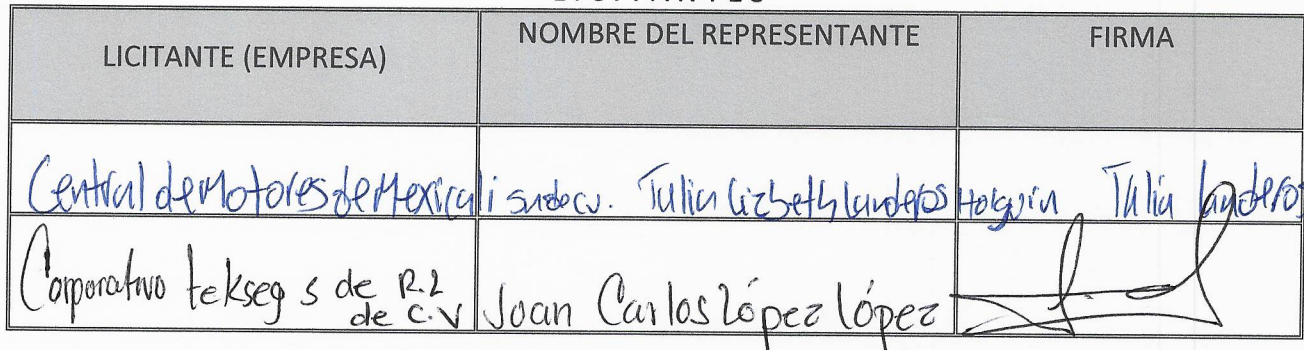 LICITANTE (EMPRESA)
NOMBRE DEL REPRESENTANTE
FIRMA
Central de Motores de Mexicali sadecv. Tulia Lizbeth Landeros Holguin Tulia Landeros
Corporativo tekseg s de R.L
de C.V
Joan Carlos López lópez